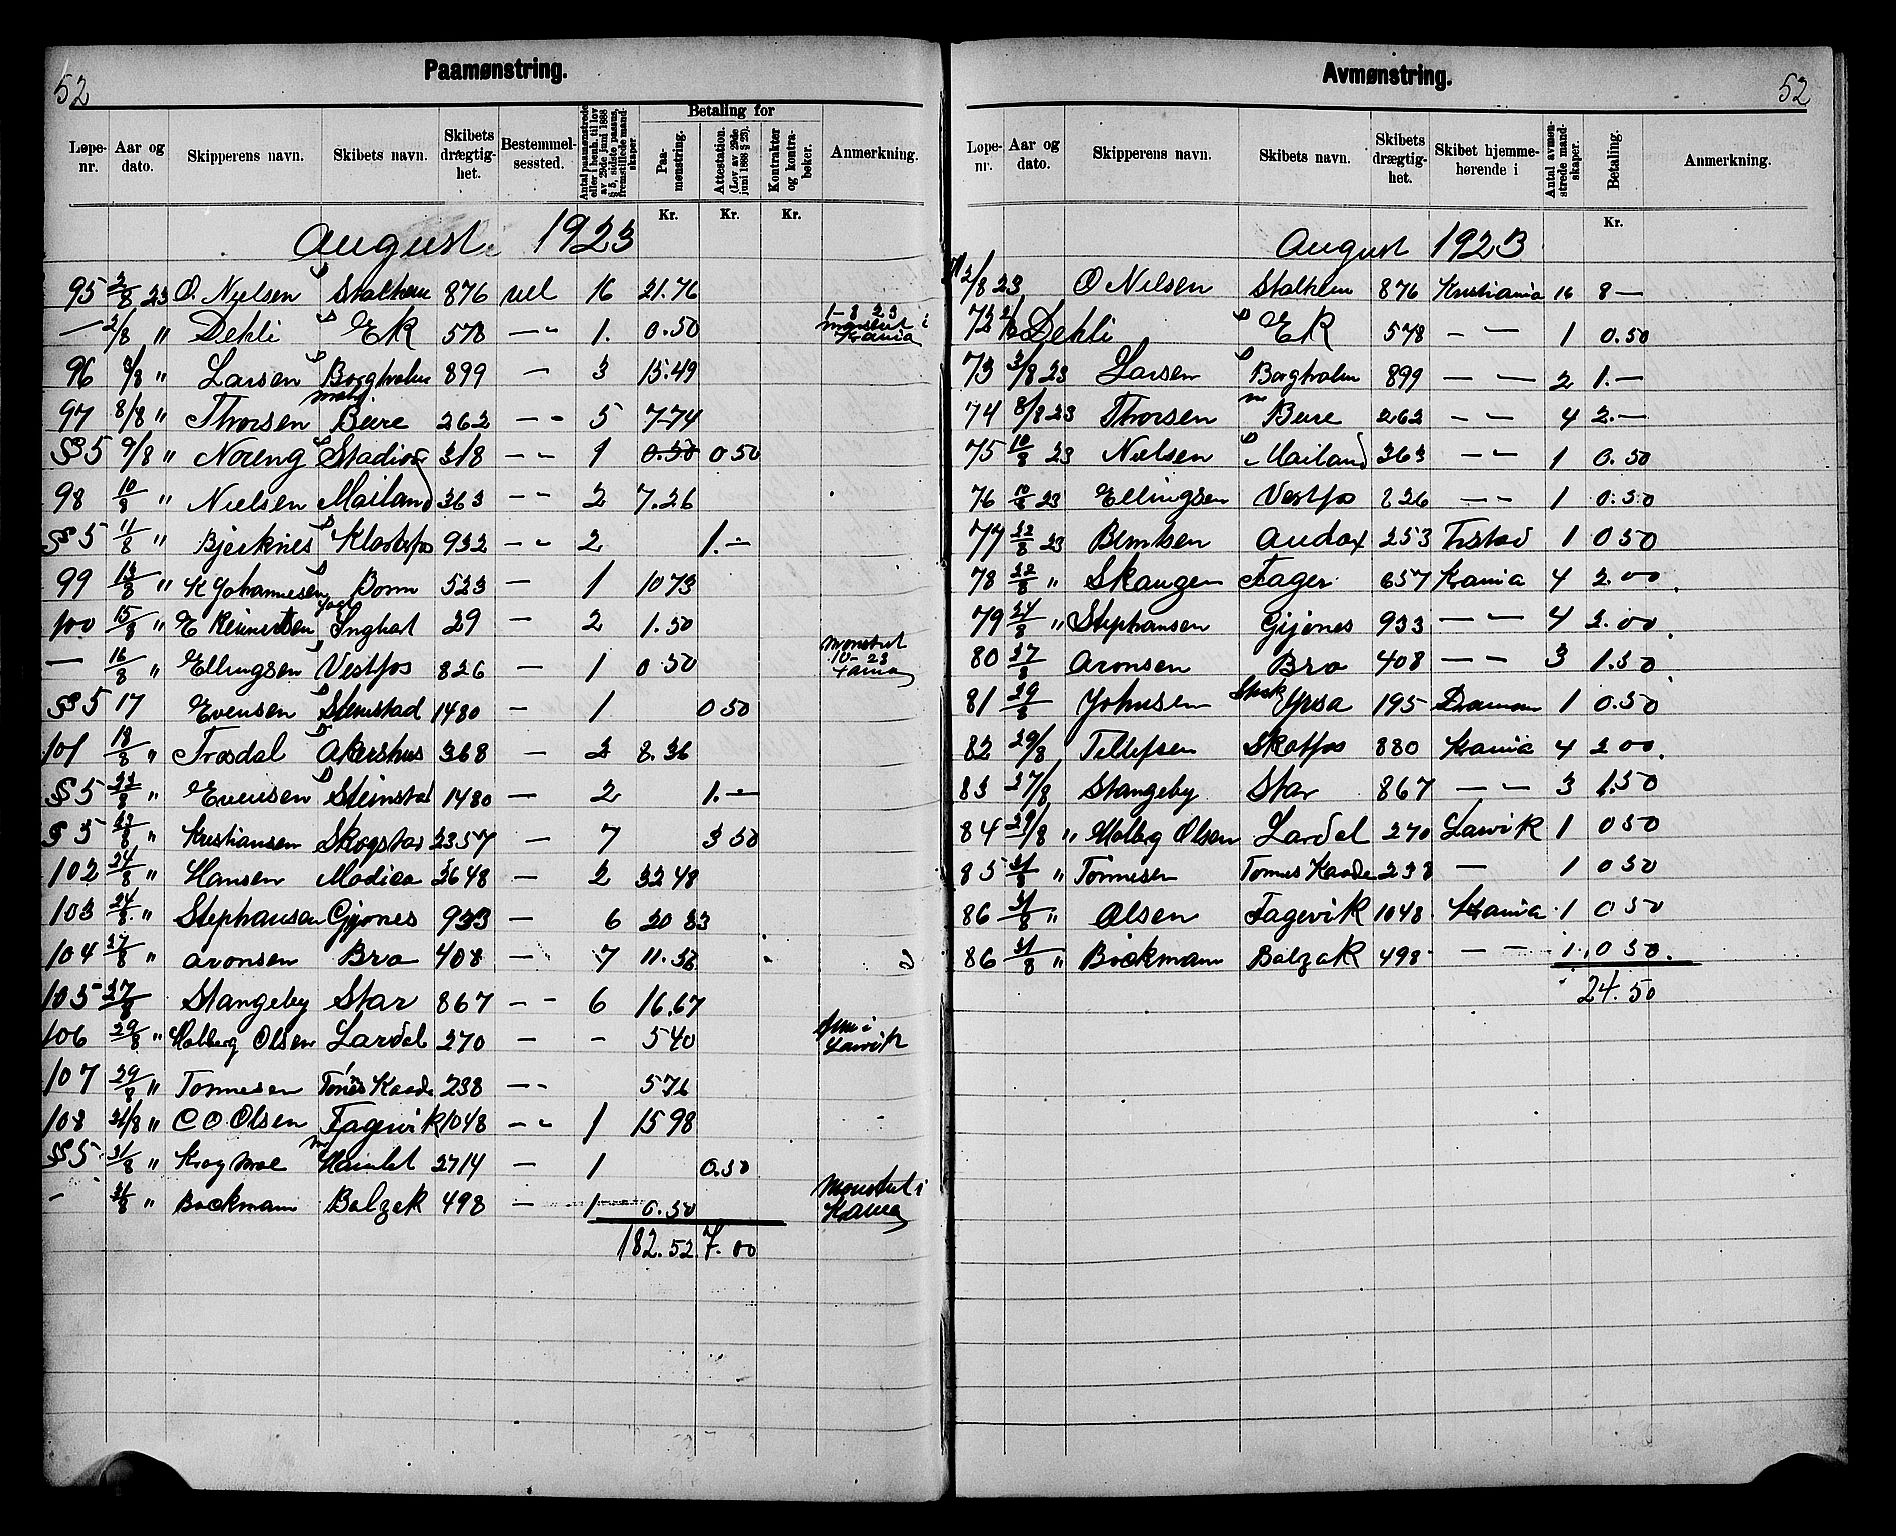 52
Paamønstring.
Løpe-nr. Aar og dato. Skipperens navn. Skibets navn. Skibets drægtighet. Bestemmelsessted. Antal paamønstrede eller i henh. til lov av 29de juni 1888 § 5, sidste passus, fremstillede mandskaper Betaling for Paamønstring. Attestation. (Lov av 29de juni 1888 § 25). Kontrakter og kontrabøker. Anmerkning.
Kr. Kr. Kr.
August 1923
95 2/8 23 O. Nielsen D Stalheim 876 uel 16 21.76
— 2/8 " Dehli D EK 578 — " 1. 0.50 1-8 23 mønstret i Krania
96 3/8 " Larsen D Borgholm 899 — 3 15.49
97 8/8 " Thorsen Beire 262 — " 5 7-74
§ 5 9/8 " Noreng D Stadion 318 — " 1 0.50 0 50
98 10/8 " Nielsen Mailand 363 — " 2 7.26
§ 5 11/8 " Bjerknes D Klosterfos 932 — " 2 1.—
99 13/8 " K Johannesen D Borm 523 — 1 1073
100 15/8 " E Reinertsen Jagt 29 — 2 1.50
— 16/8 " Ellingsen Vestfos 826 — 1 0 50 mønstret 10- 23 Krania
§ 5 17 Evensen D Steinstad 1480 — 1 0 50
101 18/8 " Trosdal D Akershus 368 — 2 8.36
§ 5 22/8 " Evensen D Steinstad 1480 — 2 1.—
§ 5 23/8 " Kristiansen Skogstad 2357 — 7 3 50
102 24/8 " Hansen Modica 3648 — 2 32 48
103 24/8 " Stephansen Gjønes 933 — 6 20 83
104 27/8 " Aronsen Bro 408 — 7 11.36
105 27/8 Stangeby Star 867 — - 6 16.67
106 29/8 " Molberg Olsen Lardel 270 — - 540 Larvik
107 29/8 " Tønnesen Tønes Kaade 238 — - 576
108 31/8 " C O. Olsen Fagervik 1048 — " 1 1598
§ 5 31/8 " Krog Moe Hamlet 2714 — 1 0.50
- 31/8 " Bockmann Balzak 498 — 1 0.50 Mønstret i Krania
182.52 7.00
Avmønstring.
52
Løpe-nr. Aar og dato. Skipperens navn. Skibets navn. Skibets drægtighet. Skibet hjemmehørende i Antal avmønstrede mandskaper. Betaling. Anmerkning.
Kr.
August 1923
71 2/8 23 O Nilsen Stalheim 876 Kristiania 16 8 —
72 2/8 Dehli D EK 578 — " — 1 0.50
73 3/8 23 Larsen D Borgholm 899 — — 2 1.—
74 8/8 23 Thorsen m Beire 262 — " — 4 2.—
75 10/8 23 Nielsen Mailand 363 — " — 1 0.50
76 10/8 23 Ellingsen Vestfos 826 — " — 1 0.50
77 22/8 23 Berntsen Audax 253 Trstad 1 0 50
78 22/8 " Skaugen Fager 657 Krania 4 2.00
79 24/8 " Stephansen Gjønes 933 — " — 4 2.00.
80 27/8 Aronsen Bro 408 — " — 3 1.50
81 29/8 Johnsen Ypsa 195 Drammen 1 0.50
82 29/8 Tellefsen Skotfos 880 Krania 4 2 00.
83 27/8 Stangeby Star 867 — " — 3 1.50
84 29/8 " Molberg Olsen Lardel 270 Larvik 1 050
85 31/8 " Tønnesen Tønnes Kaade 238 — 1 0 50
86 31/8 " Olsen Fagervik 1048 Krania 1 0 50
86 31/8 " Böckmann Balzak 498 — " — 1 0 50.
24.50